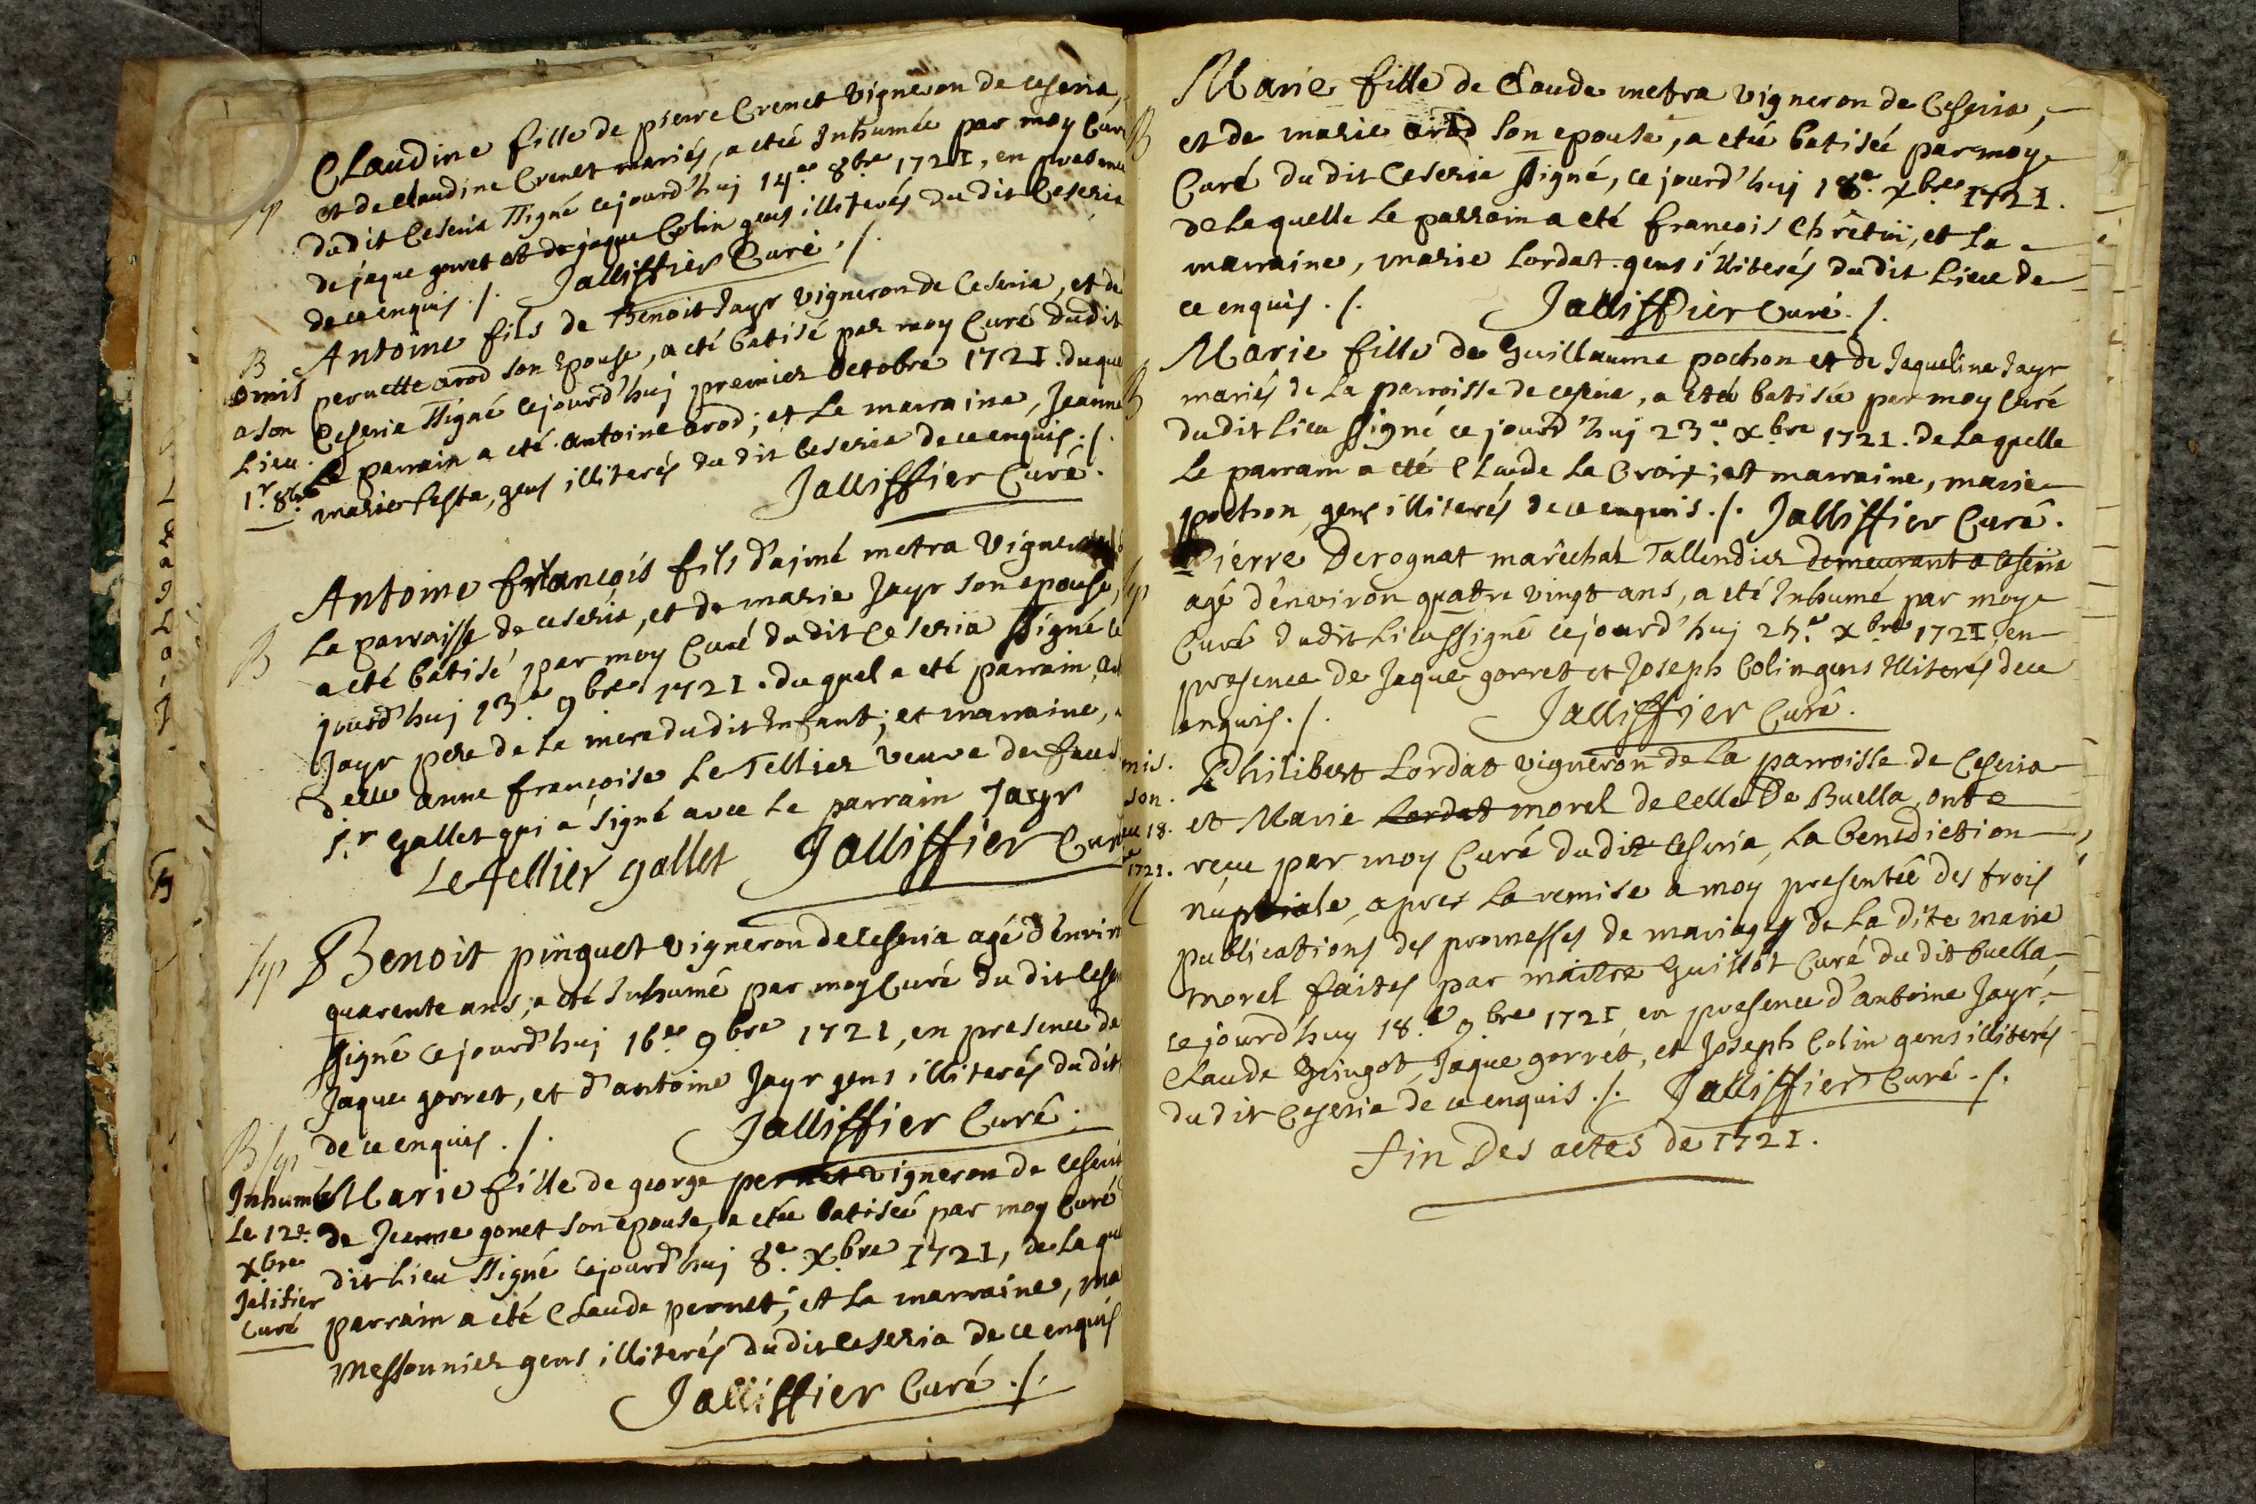 Claudine fille de pierre Crenet vigneron de ceseria,
et de claudine Crenet mariés, a eteé Inhumée par moy Curé
Sep
dudit Ceseria Signé cejourd'huj 14.e 8bre 1721, en presence
de jaque gorret et de jaque Colin gens illiterés dudit Ceseria
de ce enquis ./. Jalliffier Curé ./.
B Antoine fils de Benoit Jayr vigneron de Ceseria, et de
omis pernette arod son Epouse, a eté batisé par moy Curé dudit
a son Ceseria Signé cejourd'huj premier Octobre 1721. duquel
Lieu. Le parrain a eté antoine arod; et La marraine, Jeanne
1.r 8bre marie festa, gens illiterés du dit Ceseria de ce enquis ./.
Jalliffier Curé.
Antoine francois fils d'ajmé metra vigneron
La parroisse de ceseria, et de marie Jayr son epouse,
B a eté batisé par moy Curé dudit Ceseria Signé ce
jourd'huj 13.e 9bre 1721. duquel a eté parrain
Jayr pere de La mere dudit Enfant; et marraine,
Delle anne françoise Le Tellier veuve de feu
S.r Gallet qui a signé avec Le parrain Jayr
Le tellier gallet Jalliffier Curé
Sep Benoit pinguet vigneron de Ceseria agé d'Environ
quarente ans, a eté Inhumé par moy Curé du dit Ceseria
Signé cejourd'huj 16.e 9bre 1721, en presence de
Jaque gorret, et d'antoine Jayr gens illiterés dudit
de ce enquis ./. Jalliffier Curé.
B Sep
Inhumé Marie fille de george pernet vigneron de Ceseria
Le 12e. de Jeanne gonet son epouse, a eteé batiseé par moy Curé
xbre dit Lieu Signé cejourd'huj 8.e X.bre 1721, de La quelle
Jalifier parrain a eté Claude pernet; et La marraine,
Curé
Messonnier gens illiterés dudit Ceseria de ce enquis
Jalliffier Curé ./.
Marie fille de Claude metra vigneron de Ceseria,
B et de marie arod son epouse, a eteé batiseé par moy
Curé du dit Ceseria Signé, ce jourd'huj 18.e Xbre 1721.
de La quelle Le parrain a eté francois Chrêtin, et La
marraine, marie Lordat. gens illiterés dudit Lieu de
ce enquis ./. Jalliffier Curé ./.
Marie fille de Guillaume pochon et de Jaqueline Jayr
B mariés de La parroisse de ceseria, a eteé batisée par moy Curé
dudit Lieu Signé ce jourd'huj 23.e Xbre 1721. de La quelle
Le parrain a eté Claude La Croix; et marraine, marie
pochon, gens illiterés de ce enquis ./. Jalliffier Curé.
Pierre Derognat marêchal Tallendier demeurant a Ceseria
Sep agé d'environ quatre vingt ans, a eté Inhumé par moy
Curé dudit Lieu Signé cejourd'huj Xbre 1721, en
presence de Jaque gorret et Joseph Colin gens Illiterés de ce
enquis ./. Jalliffier Curé.
mis. Philibert Lordat vigneron de La parroisse de Ceseria
son. et Marie Lordat morel de Celle De Buella, ont
eu 18. reçu par moy Curé dudit Ceseria, La benediction
1721. nuptiale, apres La remise a moy presenteé des trois
publications des promesses de mariages de La dite marie
morel faites par maitre Guillot Curé du dit buella
ce jourd'huy 18.e 9bre 1721, en presence d'antoine Jayr,
Claude Guingot, Jaque gorrét, et Joseph Colin gens illiterés
du dit Ceseria de ce enquis ./. Jalliffier Curé ./.
fin Des actes de 1721.